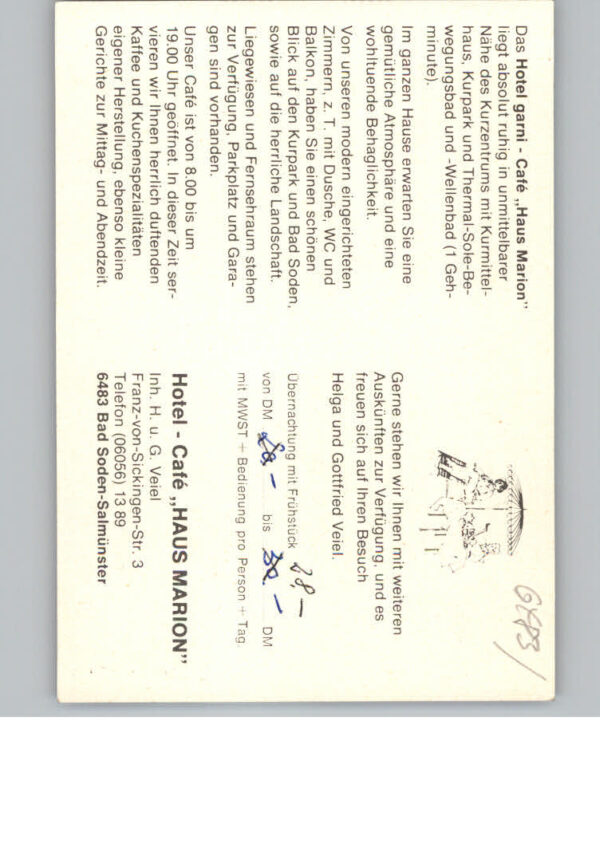 Das Hotel garni - Café „Haus Marion”
liegt absolut ruhig in unmittelbarer
Nähe des Kurzentrums mit Kurmittel-
haus, Kurpark und Thermal-Sole-Be-
wegungsbad und -Wellenbad (1 Geh-
minute).
Im ganzen Hause erwarten Sie eine
gemütliche Atmosphäre und eine
wohltuende Behaglichkeit.
Von unseren modern eingerichteten
Zimmern, z. T. mit Dusche, WC und
Balkon, haben Sie einen schönen
Blick auf den Kurpark und Bad Soden,
sowie auf die herrliche Landschaft.
Liegewiesen und Fernsehraum stehen
zur Verfügung, Parkplatz und Gara-
gen sind vorhanden.
Unser Café ist von 8.00 bis um
19.00 Uhr geöffnet. In dieser Zeit ser-
vieren wir Ihnen herrlich duftenden
Kaffee und Kuchenspezialitäten
eigener Herstellung, ebenso kleine
Gerichte zur Mittag- und Abendzeit.
6483/
Gerne stehen wir Ihnen mit weiteren
Auskünften zur Verfügung, und es
freuen sich auf Ihren Besuch
Helga und Gottfried Veiel.
Übernachtung mit Frühstück 28,–
von DM – bis – DM
mit MWST + Bedienung pro Person + Tag
Hotel - Café „HAUS MARION”
Inh. H. u. G. Veiel
Franz-von-Sickingen-Str. 3
Telefon (06056) 13 89
6483 Bad Soden-Salmünster